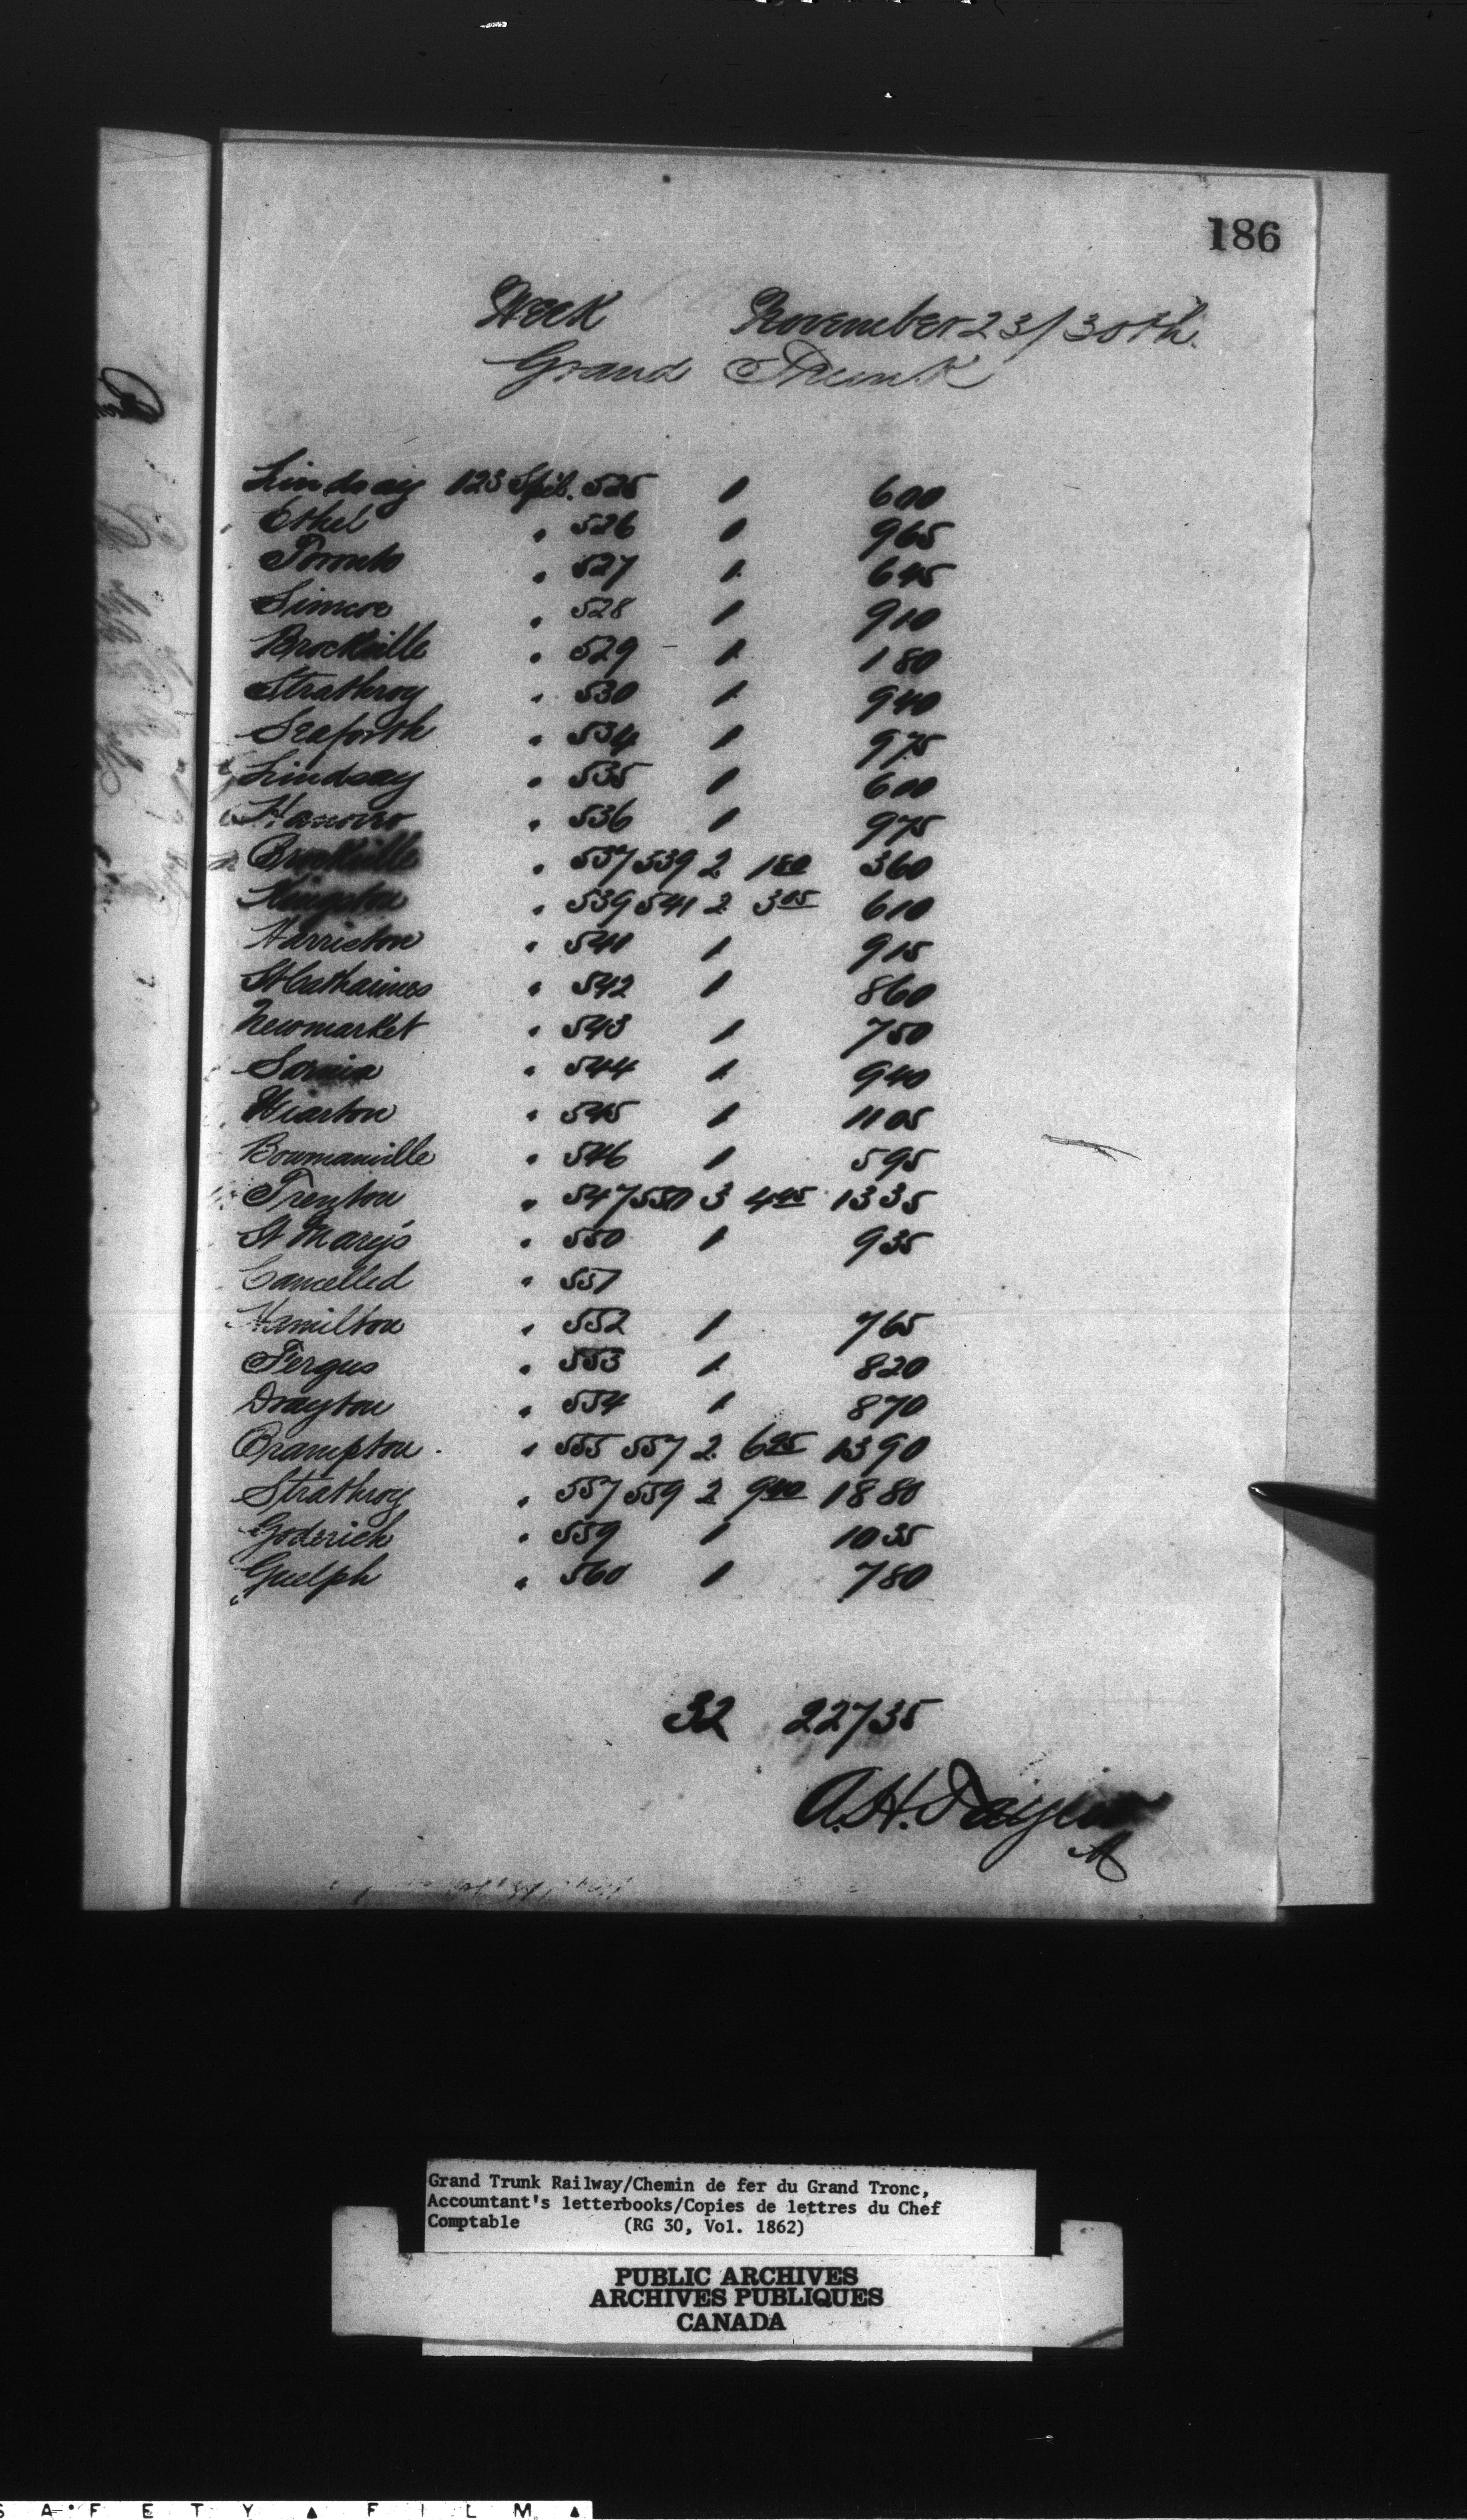 186
Week November 23/30th.
Grand Trunk
Lindsay 123 Spcl. 525 1 600
Ethel " 526 1 965
Toronto " 527 1 645
Simcoe " 528 1 910
Brockville " 529 1 180
Strathroy " 530 1 940
Seaforth " 534 1 975
Lindsay " 535 1 600
Hanover " 536 1 975
Brockville " 537 539 2 180 360
Kingston " 539 541 2 305 610
Harriston " 541 1 915
St Catharines " 542 1 860
Newmarket " 543 1 750
Sarnia " 544 1 940
Wiarton " 545 1 1105
Bowmanville " 546 1 595
Trenton " 547 550 3 445 1335
St Mary's " 550 1 935
Cancelled " 551
Hamilton " 552 1 765
Fergus " 553 1 820
Drayton " 554 1 870
Brampton " 555 557 2 695 1390
Strathroy " 557 559 2 940 1880
Goderich " 559 1 1035
Guelph " 560 1 780
32 22735
A.H. Taylor
Grand Trunk Railway/Chemin de fer du Grand Tronc,
Accountant's letterbooks/Copies de lettres du Chef
Comptable (RG 30, Vol. 1862)
PUBLIC ARCHIVES
ARCHIVES PUBLIQUES
CANADA
SAFETY FILM